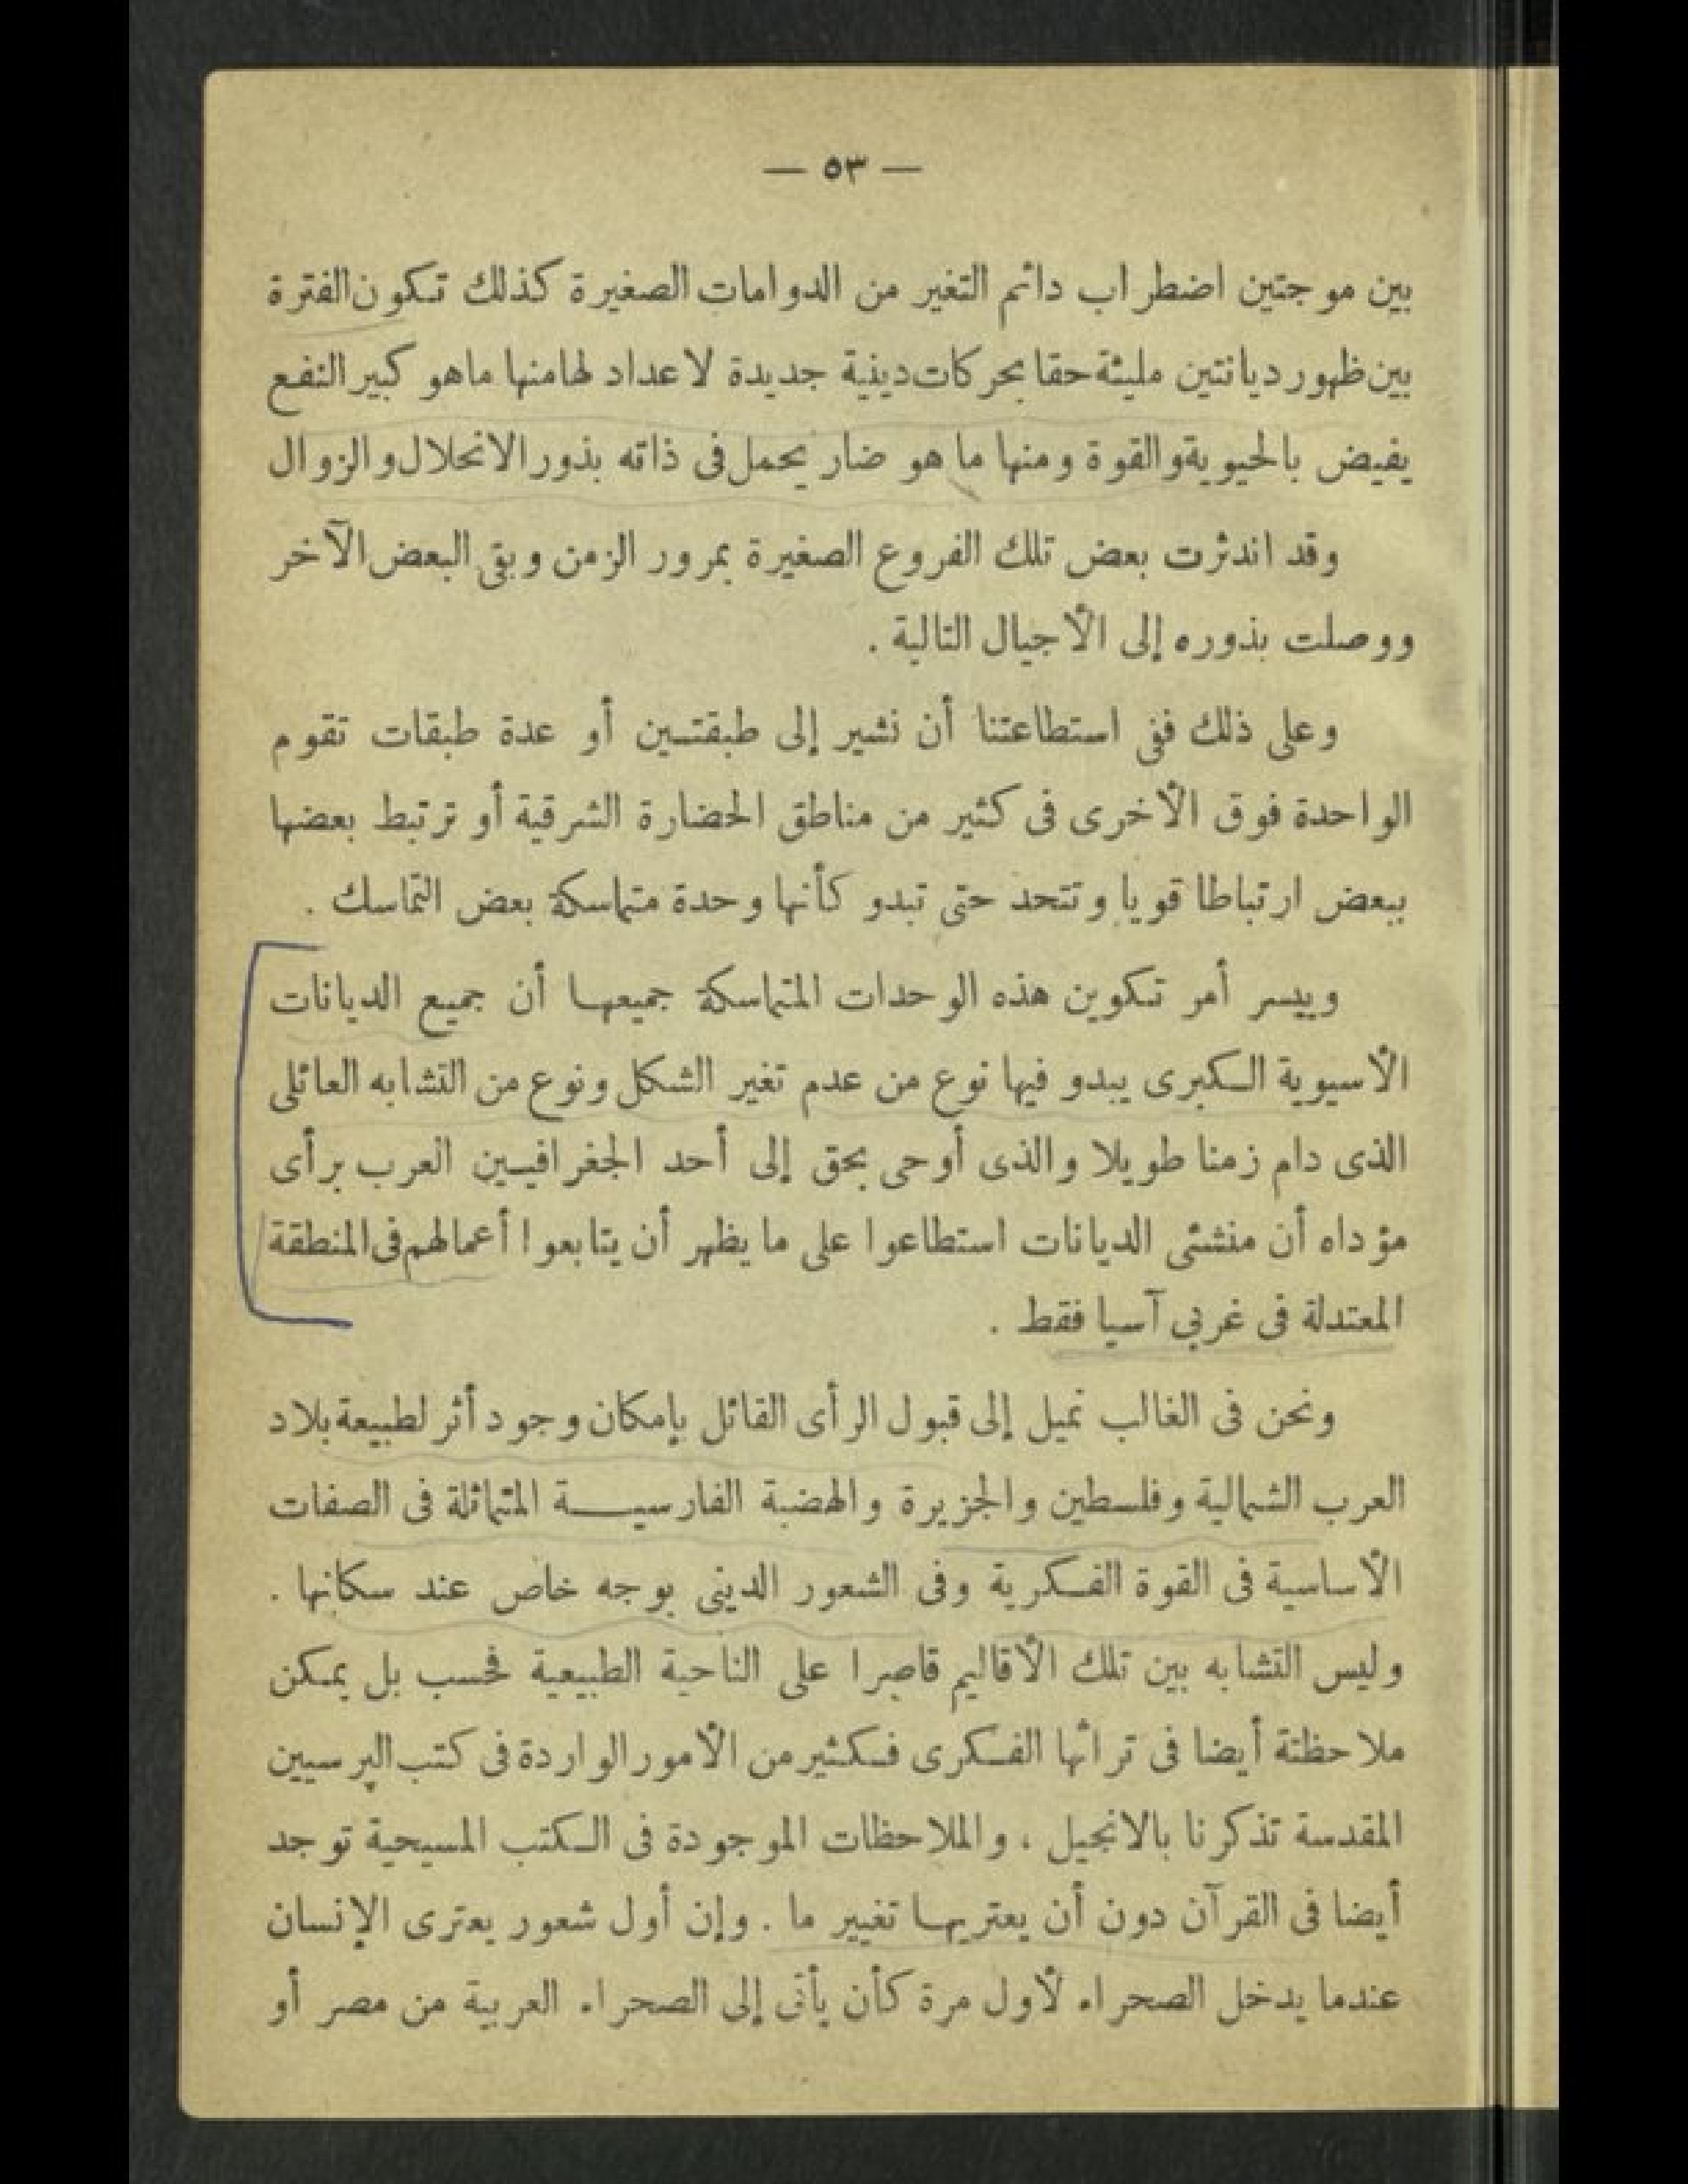 — ٥٣ —
بين موجتين اضطراب دائم التغير من الدوامات الصغيرة كذلك تكون الفترة
بين ظهور ديانتين مليئة حقا بحركات دينية جديدة لاعداد لها منها ما هو كبير النفع
يفيض بالحيوية والقوة ومنها ما هو ضار يحمل فى ذاته بذور الانحلال والزوال
وقد اندثرت بعض تلك الفروع الصغيرة بمرور الزمن وبقى البعض الآخر
ووصلت بذوره إلى الأجيال التالية .
وعلى ذلك ففى استطاعتنا أن نشير إلى طبقتين أو عدة طبقات تقوم
الواحدة فوق الأخرى فى كثير من مناطق الحضارة الشرقية أو ترتبط بعضها
ببعض ارتباطا قويا وتتحد حتى تبدو كأنها وحدة متماسكة بعض التماسك .
وييسر أمر تكوين هذه الوحدات المتماسكة جميعها أن جميع الديانات
الأسيوية الكبرى يبدو فيها نوع من عدم تغير الشكل ونوع من التشابه العائلى
الذى دام زمنا طويلا والذى أوحى بحق إلى أحد الجغرافيين العرب برأى
مؤداه أن منشئى الديانات استطاعوا على ما يظهر أن يتابعوا أعمالهم فى المنطقة
المعتدلة فى غربي آسيا فقط .
ونحن فى الغالب نميل إلى قبول الرأى القائل بإمكان وجود أثر لطبيعة بلاد
العرب الشمالية وفلسطين والجزيرة والهضبة الفارسية المتماثلة فى الصفات
الأساسية فى القوة الفكرية وفى الشعور الدينى بوجه خاص عند سكانها .
وليس التشابه بين تلك الأقاليم قاصرا على الناحية الطبيعية فحسب بل يمكن
ملاحظتة أيضا فى تراثها الفكرى فكثير من الأمور الواردة فى كتب الپرسيين
المقدسة تذكرنا بالانجيل ، والملاحظات الموجودة فى الكتب المسيحية توجد
أيضا فى القرآن دون أن يعتريها تغيير ما . وإن أول شعور يعترى الإنسان
عندما يدخل الصحراء لأول مرة كأن يأتى إلى الصحراء العربية من مصر أو